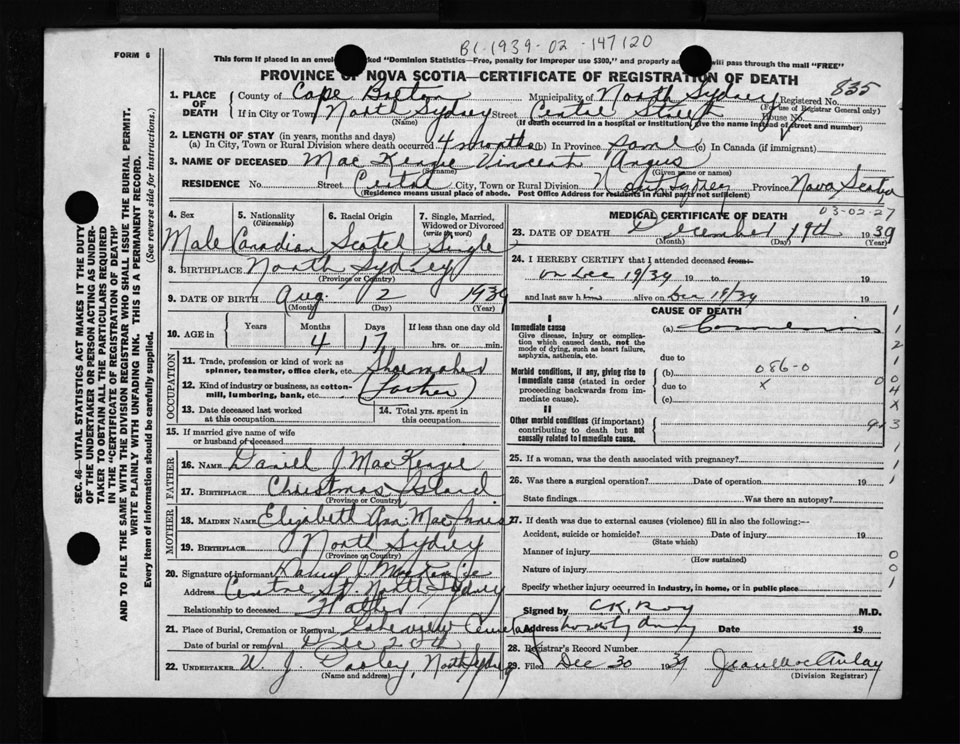 B1-1939-02-147120
FORM 6
This form if placed in an envelope marked "Dominion Statistics—Free, penalty for improper use $300," and properly addressed will pass through the mail "FREE"
PROVINCE OF NOVA SCOTIA—CERTIFICATE OF REGISTRATION OF DEATH
835
1. PLACE OF DEATH County of Cape Breton Municipality of North Sydney Registered No. (For use of Registrar General only)
If in City or Town North Sydney Street Central Street House No.
(Name) (If death occurred in a hospital or institution, give the name instead of street and number)
2. LENGTH OF STAY (in years, months and days)
(a) In City, Town or Rural Division where death occurred 4 months (b) In Province Same (c) In Canada (if immigrant)
3. NAME OF DECEASED MacKenzie Vincent Angus
(Surname) (Given name or names)
RESIDENCE No. Street Central City, Town or Rural Division North Sydney Province Nova Scotia
(Residence means usual place of abode. Post Office Address for Residents in rural parts not sufficient)
4. Sex 5. Nationality (Citizenship) 6. Racial Origin 7. Single, Married, Widowed or Divorced (write the word)
Male Canadian Scotch Single
8. BIRTHPLACE North Sydney
(Province or Country)
9. DATE OF BIRTH Aug. 2 1939
(Month) (Day) (Year)
10. AGE in Years Months Days If less than one day old
4 17 hrs. or min.
OCCUPATION
11. Trade, profession or kind of work as spinner, teamster, office clerk, etc. Shoemaker
12. Kind of industry or business, as cotton-mill, lumbering, bank, etc. (Father)
13. Date deceased last worked at this occupation
14. Total yrs. spent in this occupation
15. If married give name of wife or husband of deceased
FATHER
16. NAME Daniel J MacKenzie
17. BIRTHPLACE Christmas Island
(Province or Country)
MOTHER
18. MAIDEN NAME Elizabeth Ann MacInnis
19. BIRTHPLACE North Sydney
(Province or Country)
20. Signature of informant J. MacKenzie
Address Centre St. North Sydney
Relationship to deceased Father
21. Place of Burial, Cremation or Removal Lakeview Cemetery
Date of burial or removal Dec 20th
22. UNDERTAKER W J North Sydney
(Name and address)
MEDICAL CERTIFICATE OF DEATH
03-02-27
23. DATE OF DEATH December 19th 1939
(Month) (Day) (Year)
24. I HEREBY CERTIFY that I attended deceased from:
on Dec 19/39 19 to 19
and last saw him alive on Dec 19/39 19
CAUSE OF DEATH
I
Immediate cause
Give disease, injury or complication which caused death, not the mode of dying, such as heart failure, asphyxia, asthenia, etc.
(a) Convulsions
due to
Morbid conditions, if any, giving rise to immediate cause (stated in order proceeding backwards from immediate cause).
(b) 086-0
due to x
(c)
II
Other morbid conditions (if important) contributing to death but not causally related to immediate cause.
25. If a woman, was the death associated with pregnancy?
26. Was there a surgical operation? Date of operation 19
State findings Was there an autopsy?
27. If death was due to external causes (violence) fill in also the following:—
Accident, suicide or homicide? Date of injury 19
(State which)
Manner of injury
(How sustained)
Nature of injury
Specify whether injury occurred in industry, in home, or in public place
Signed by C K Roy M.D.
Address Date 19
28. Registrar's Record Number
29. Filed Dec 30 1939 Jean MacAulay
(Division Registrar)
SEC. 46—VITAL STATISTICS ACT MAKES IT THE DUTY
OF THE UNDERTAKER OR PERSON ACTING AS UNDER-
TAKER TO OBTAIN ALL THE PARTICULARS REQUIRED
IN THE "CERTIFICATE OF REGISTRATION OF DEATH"
AND TO FILE THE SAME WITH THE DIVISION REGISTRAR WHO SHALL ISSUE THE BURIAL PERMIT.
WRITE PLAINLY WITH UNFADING INK. THIS IS A PERMANENT RECORD.
Every item of information should be carefully supplied. (See reverse side for instructions.)